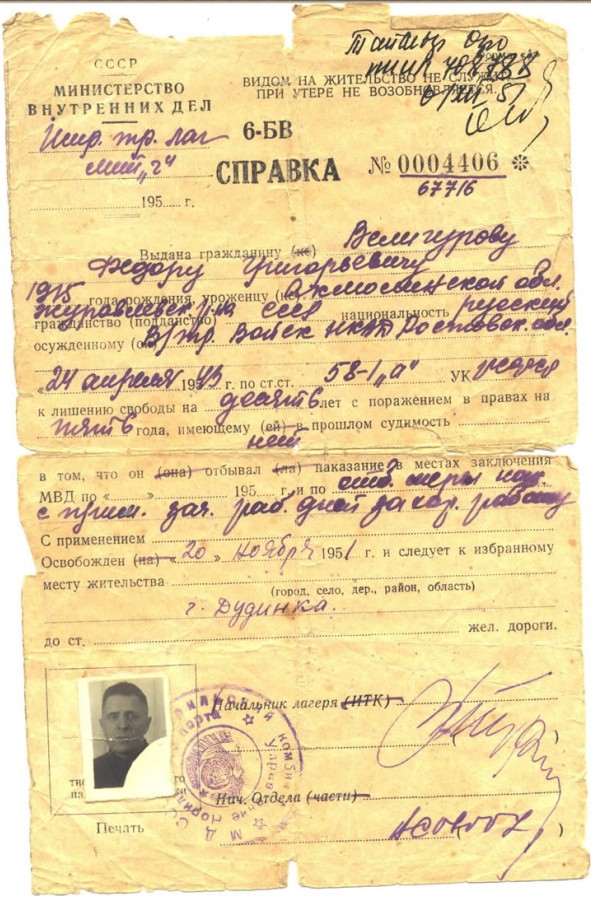 СССР
МИНИСТЕРСТВО
ВНУТРЕННИХ ДЕЛ
ВИДОМ НА ЖИТЕЛЬСТВО НЕ
ПРИ УТЕРЕ НЕ ВОЗОБНОВЛЯЕТСЯ.
Испр. тр. лаг
"г"
195 г.
6-БВ
СПРАВКА
№ 0004406
67716
Выдана гражданину (ке) Велигурову
Федору Григорьевичу
1915 года рождения, уроженцу (ке) Акмолинской обл.
гражданство (подданство) СССР национальность русский
осужденному (ой) В/тр. Войск НКВД Ростовск. обл.
"24 апреля 1943 г. по ст.ст. 58-1 "а" УК РСФСР
к лишению свободы на десять лет с поражением в правах на
пять года, имеющему (ей) в прошлом судимость
нет
в том, что он (она) отбывал (ла) наказание в местах заключения
МВД по « » 195 г. и по отб. меры нак.
с прим. зач. раб. дней за работу
С применением
Освобожден (на) « 20 » ноября 1951 г. и следует к избранному
месту жительства
(город, село, дер., район, область)
г. Дудинка.
до ст. жел. дороги.
Начальник лагеря (ИТК)
Нач. Отдела (части)
Печать